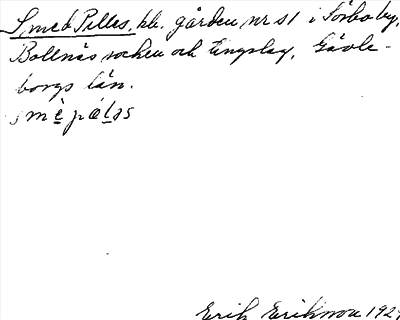 Smed Pelles, kb. gården nr 51 i Sörbo by,
Bollnäs socken och tingslag, Gävle-
borgs län.
smè pálǝs
Erik Eriksson 192